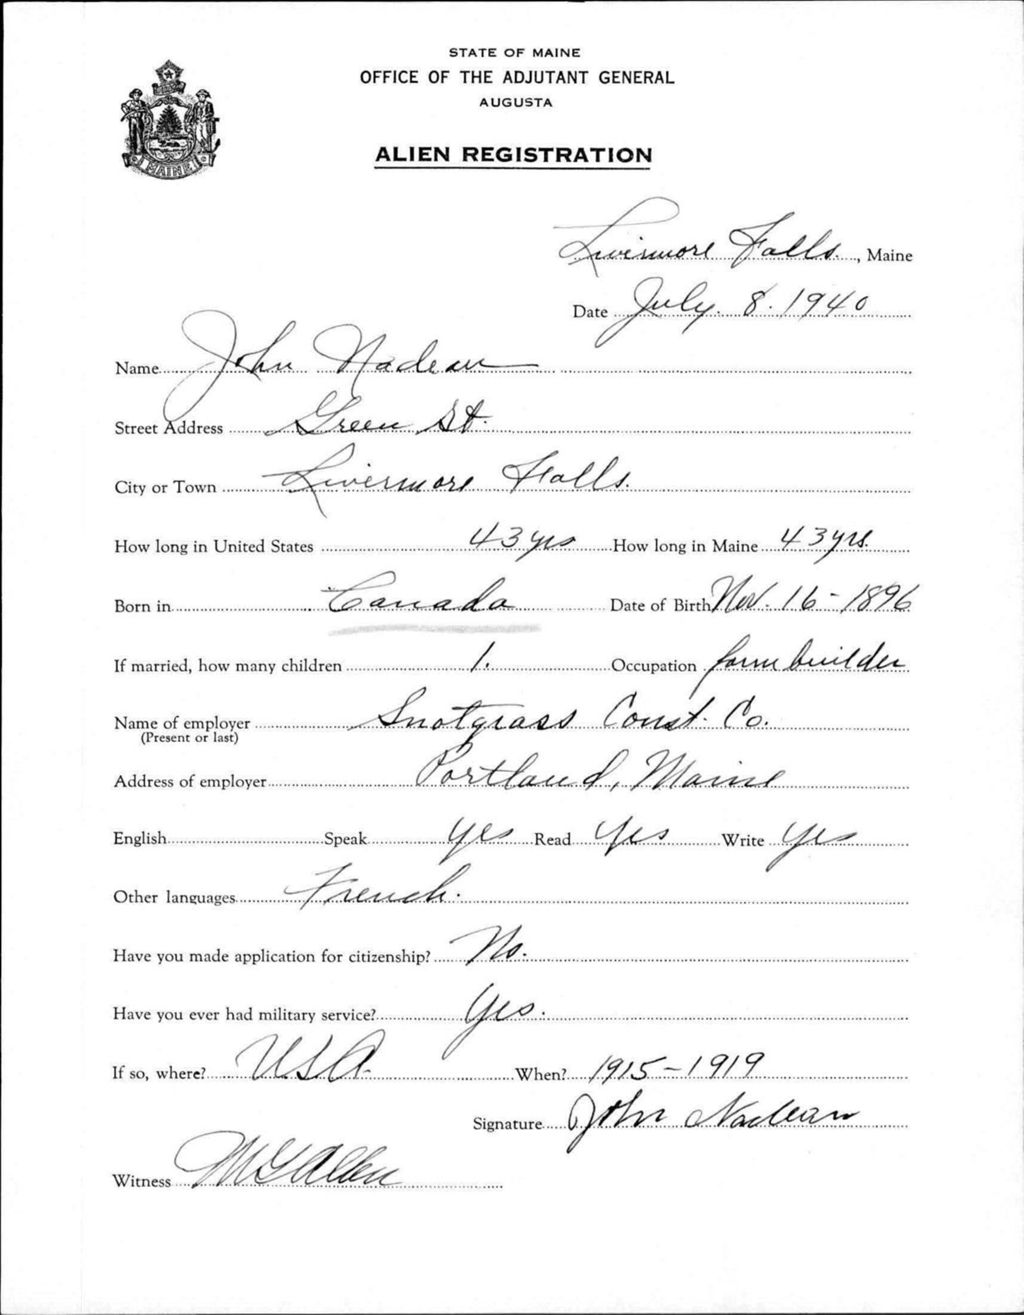 STATE OF MAINE
OFFICE OF THE ADJUTANT GENERAL
AUGUSTA
ALIEN REGISTRATION
MAINE
Livermore Falls, Maine
Date July. 8. 1940
Name John Nadeau
Street Address Green St.
City or Town Livermore Falls.
How long in United States 43 yrs How long in Maine 43 yrs.
Born in Canada Date of Birth Nov. 16 - 1896
If married, how many children 1. Occupation form builder
Name of employer Snotgrass Const. Co.
(Present or last)
Address of employer Portland, Maine
English Speak yes Read Yes Write yes
Other languages French.
Have you made application for citizenship? No.
Have you ever had military service? Yes.
If so, where? USA. When? 1915 - 1919
Signature John Nadeau
Witness Allen